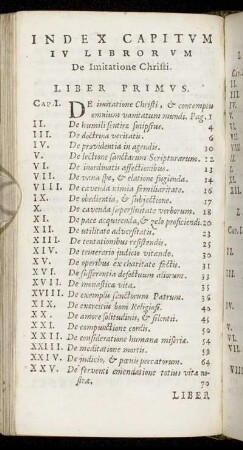 INDEX CAPITVM
IV LIBRORVM
De Imitatione Christi.
LIBER PRIMVS.
CAP. I. DE imitatione Christi, & contemptu
omnium vanitatum mundi. Pag. 1
II. De humili sentire suiipsius. 4
III. De doctrina veritatis. 6
IV. De providentia in agendis. 10
V. De lectione sanctarum Scripturarum. 12
VI. De inordinatis affectionibus. 13
VII. De vana spe, & elatione fugienda. 14
VIII. De cavenda nimia familiaritate. 16
IX. De obedientia, & subjectione. 17
X. De cavenda superfluitate verborum. 18
XI. De pace acquirenda, & zelo proficiendi. 20
XII. De utilitate adversitatis. 23
XIII. De tentationibus resistendis. 25
XIV. De temerario judicio vitando. 30
XV. De operibus ex charitate factis. 31
XVI. De sufferentia defectuum aliorum. 33
XVII. De monastica vita. 35
XVIII. De exemplis sanctorum Patrum. 36
XIX. De exercitiis boni Religiosi. 40
XX. De amore solitudinis, & silentii. 45
XXI. De compunctione cordis. 50
XXII. De consideratione humanæ miseriæ. 54
XXIII. De meditatione mortis. 59
XXIV. De judicio, & pœnis peccatorum. 64
XXV. De ferventi emendatione totius vitæ no-
stræ. 70
LIBER